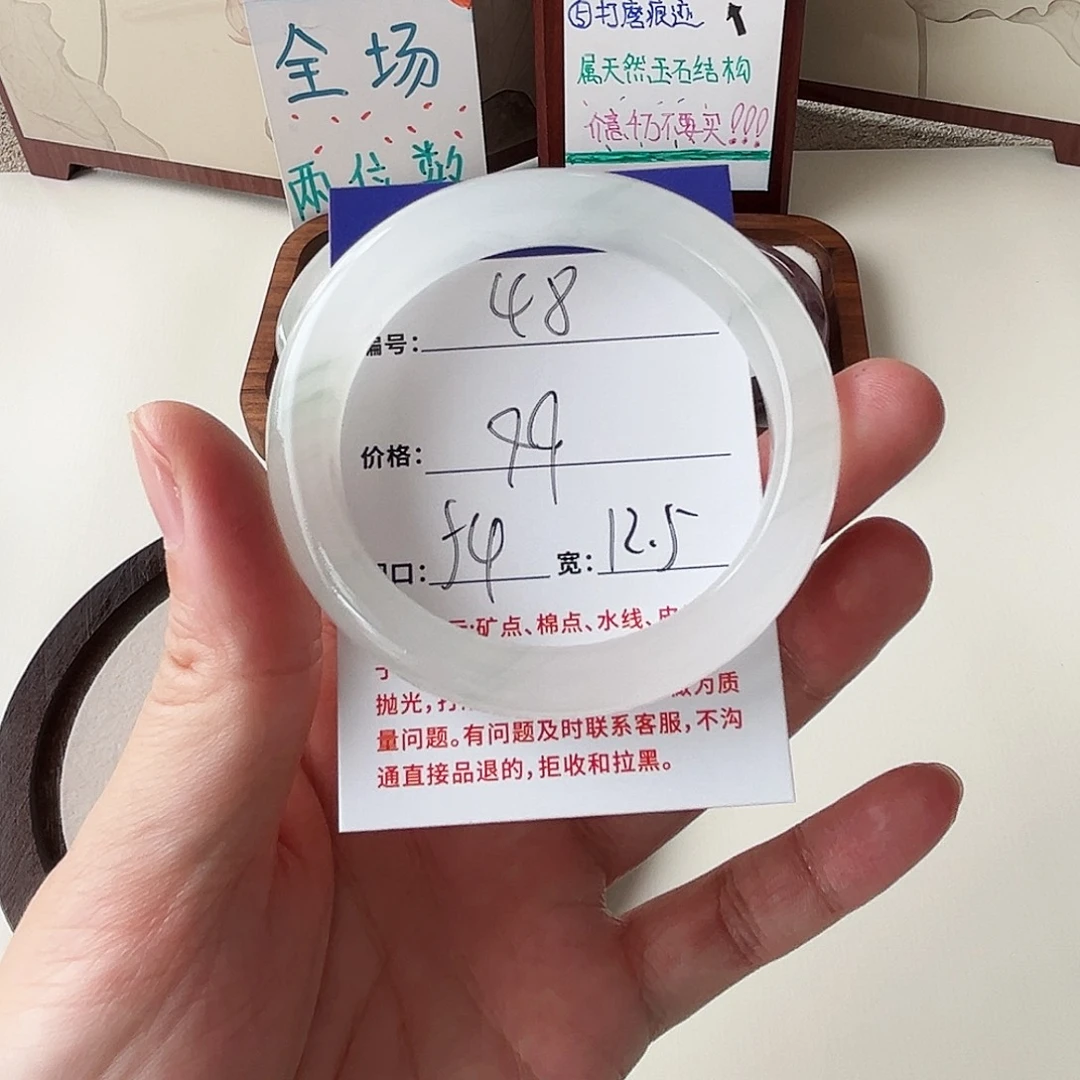 全场
两位数
⑤打磨痕迹
属天然玉石结构
介意千万不要买!!!
编号: 48
价格: 99
口: 54 宽: 12.5
:矿点、棉点、水线、皮
抛光,打 为质
量问题。有问题及时联系客服,不沟
通直接品退的,拒收和拉黑。